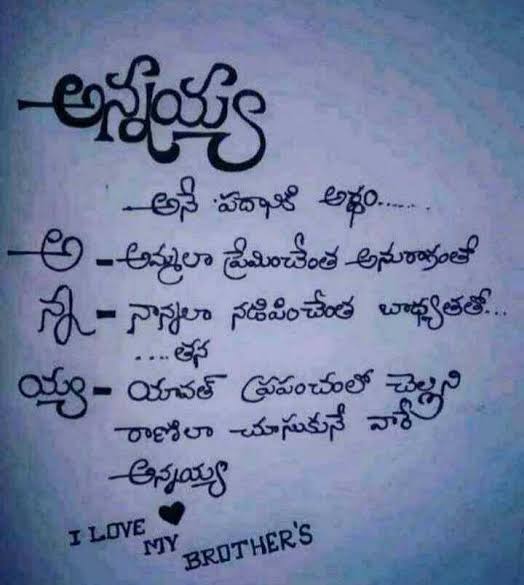 అన్నయ్య
అనే పదానికి అర్థం......
అ - అమ్మలా ప్రేమించేంత అనురాగంతో
న్న - నాన్నలా నడిపించేంత బాధ్యతతో...
....తన
య్య - యావత్ ప్రపంచంలో చెల్లని
రాణిలా చూసుకునే వారే
అన్నయ్య
I LOVE ♥
MY
BROTHER'S